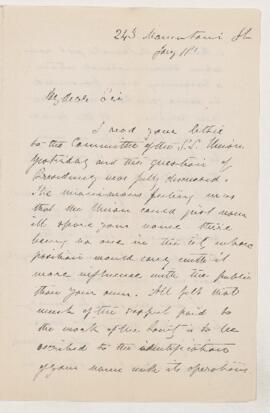 243 Mountain St
Jany 11th
My dear Sir
I read your letter
to the Committee of the S.S. Union
yesterday and the question of
Presidency was fully discussed.
The unanimous feeling was
that the Union could just now
ill spare your name there
being no one in the city whose
position would carry with it
more influence with the public
than your own. All felt that
much of the respect paid to
the work of the Society is to be
ascribed to the identification
of your name with its operations